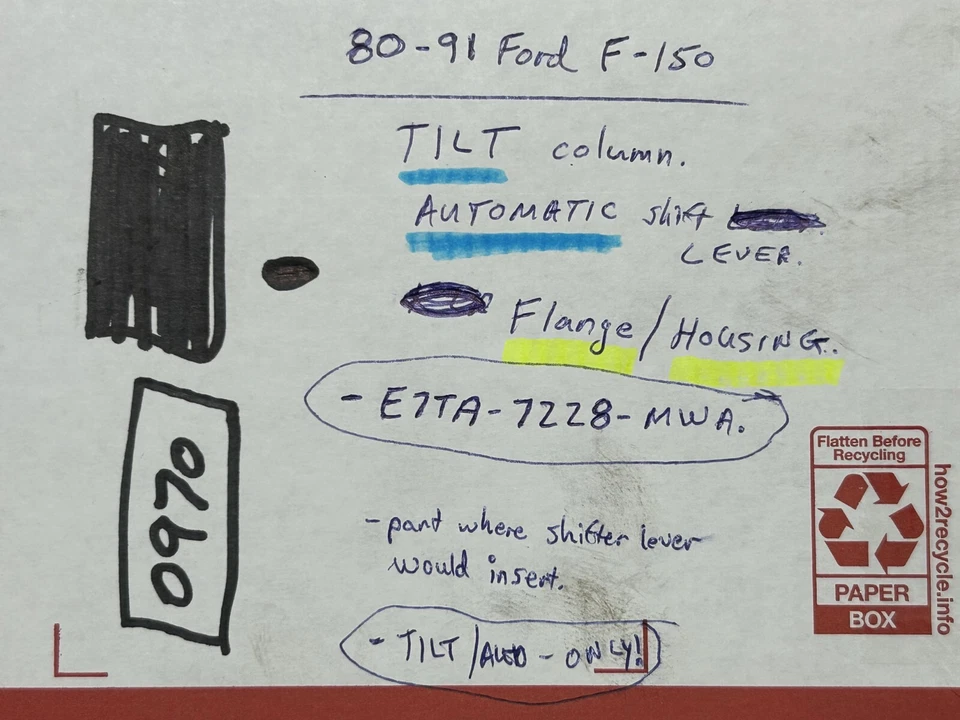 80-91 Ford F-150
TILT column.
AUTOMATIC shift
LEVER.
Flange/HOUSING.
- E7TA-7228-MWA.
- part where shifter lever
would insert.
- TILT/AUTO - ONLY!
0970
Flatten Before
Recycling
PAPER
BOX
how2recycle.info